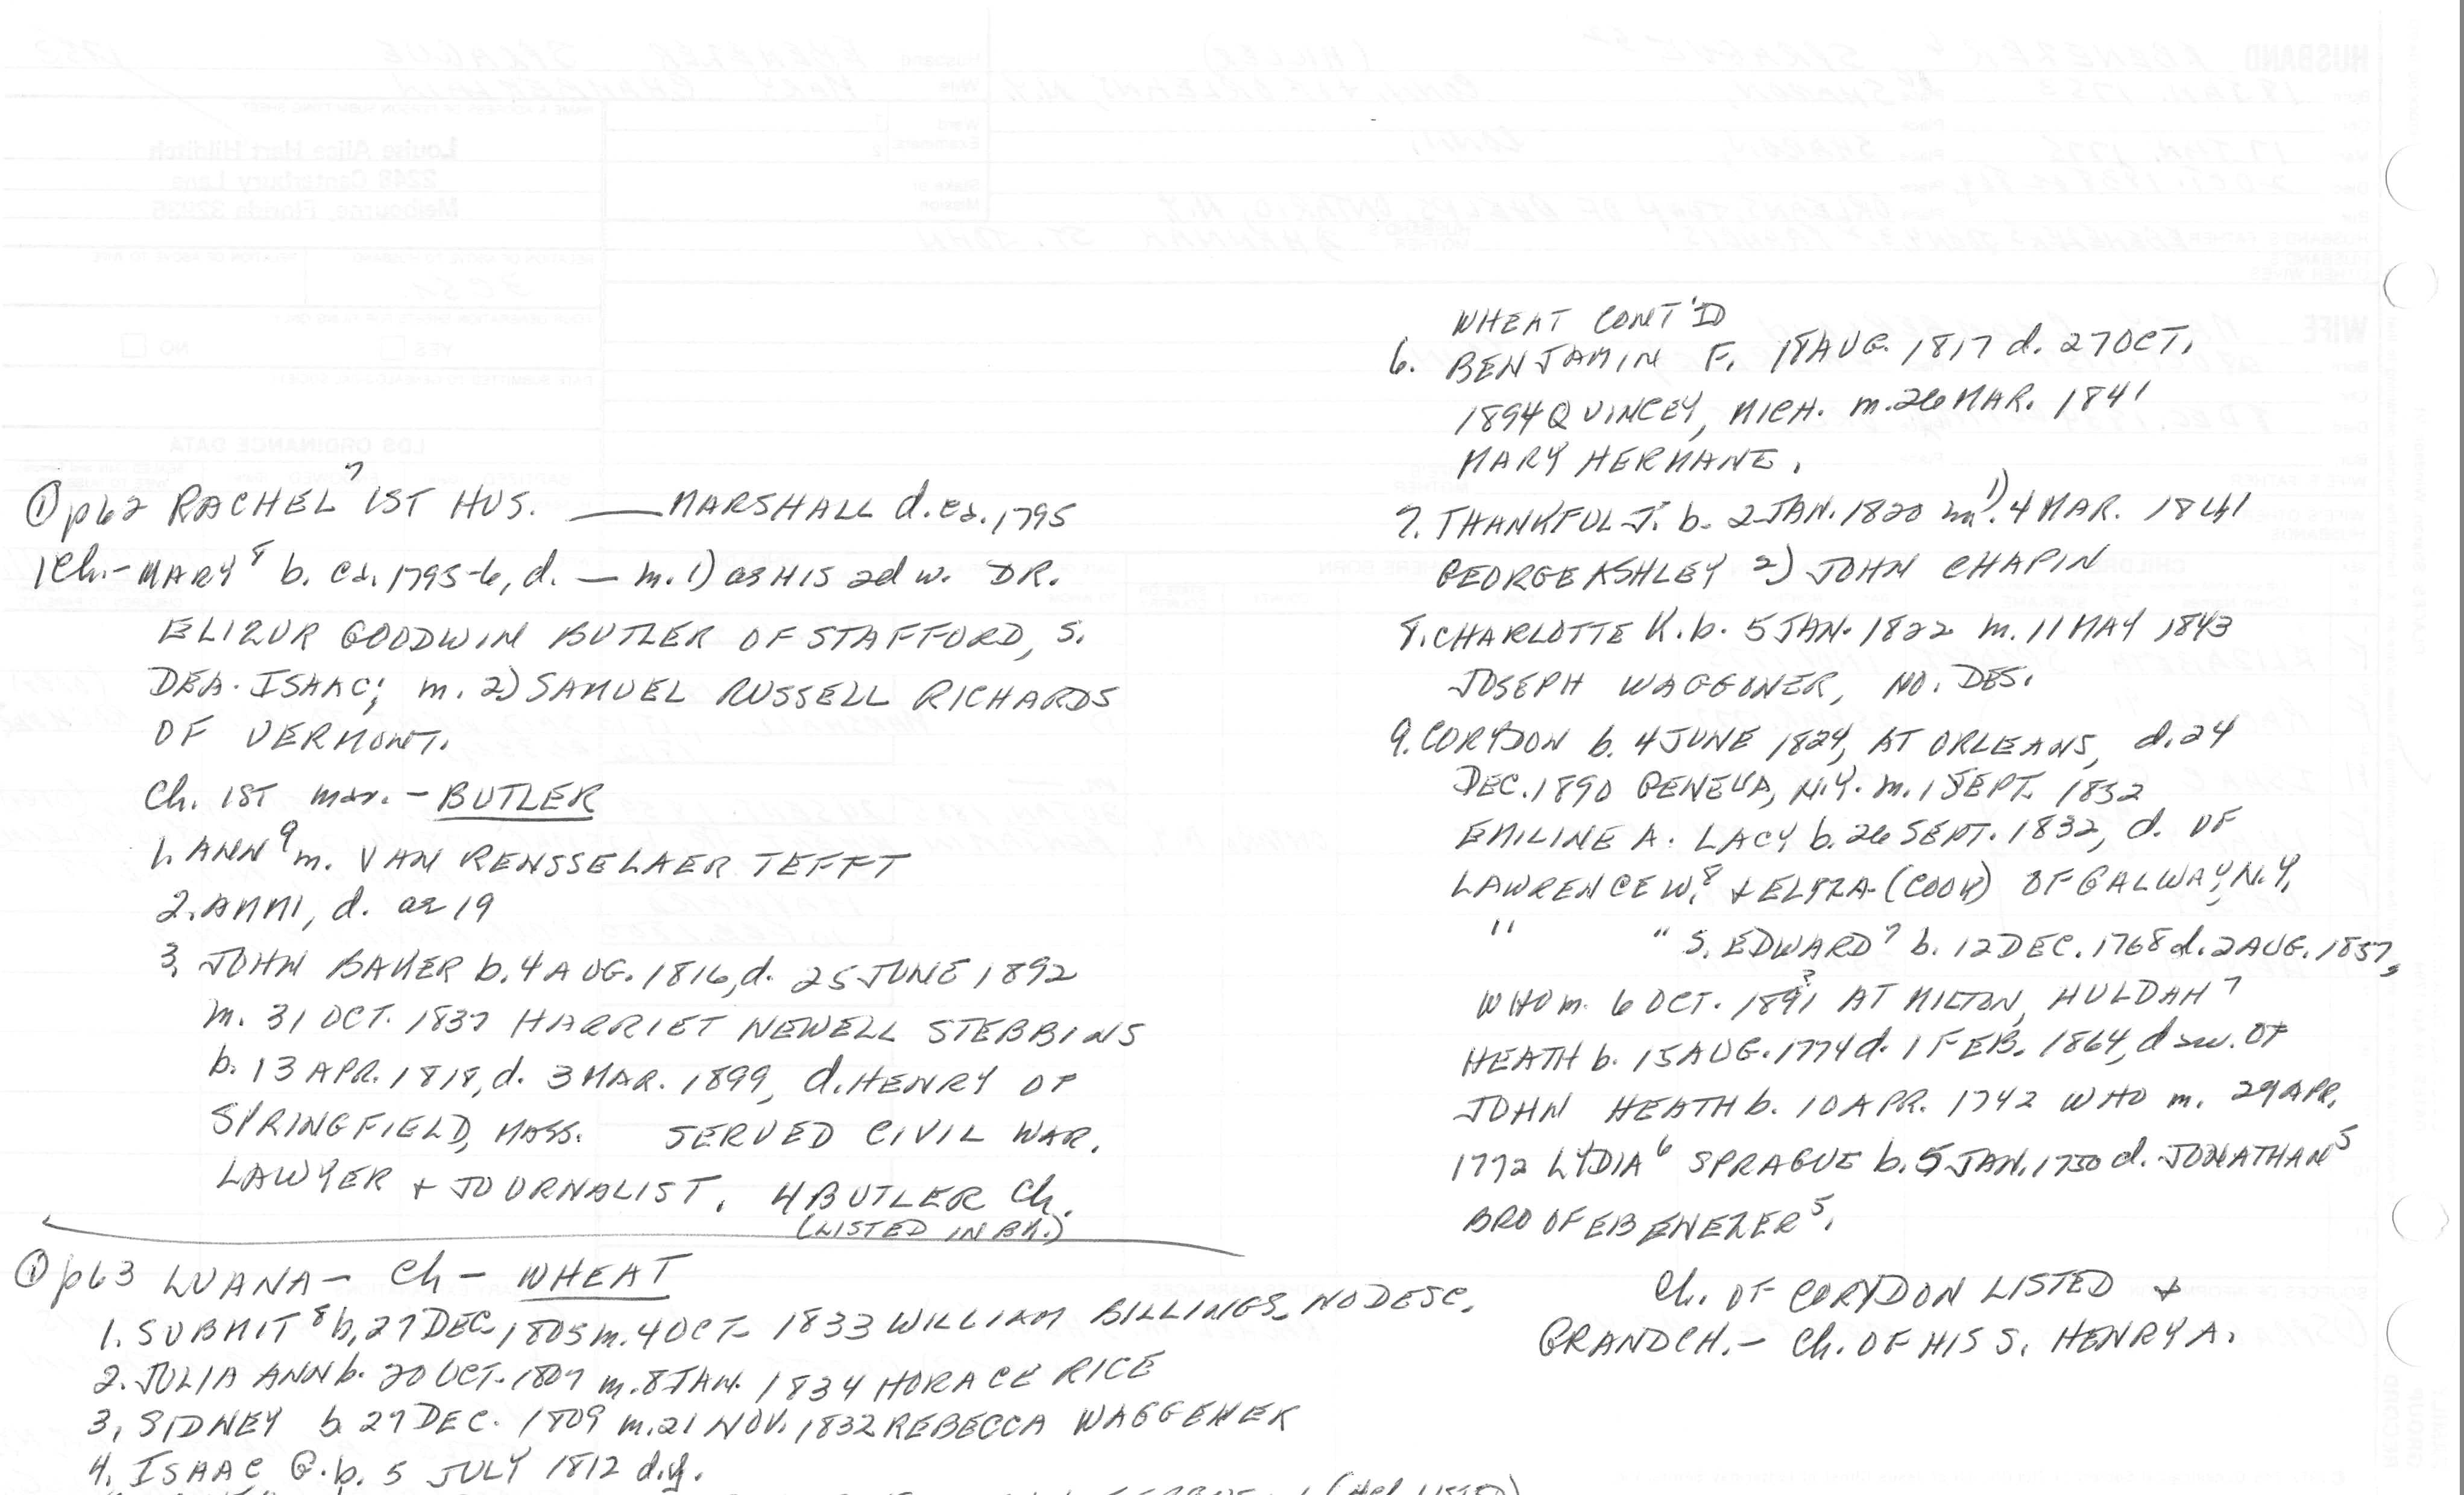 ① p62 RACHEL⁷ 1ST HUS. ___ MARSHALL d. ca. 1795
1Ch.- MARY⁸ b. ca. 1795-6, d. — m. 1) as HIS 2d w. DR.
ELIZUR GOODWIN BUTLER OF STAFFORD, S.
DEA. ISAAC; m. 2) SAMUEL RUSSELL RICHARDS
OF VERMONT.
Ch. 1ST mar. - BUTLER
1. ANN⁹ m. VAN RENSSELAER TEFFT
2. ANNI, d. ae 19
3. JOHN BAKER b. 4 AUG. 1816, d. 25 JUNE 1892
m. 31 OCT. 1837 HARRIET NEWELL STEBBINS
b. 13 APR. 1818, d. 3 MAR. 1899, d. HENRY OF
SPRINGFIELD, MASS. SERVED CIVIL WAR.
LAWYER + JOURNALIST. 4 BUTLER Ch.
(LISTED IN BK.)
① p63 LUANA - Ch - WHEAT
1. SUBMIT⁸ b. 27 DEC. 1805 m. 4 OCT. 1833 WILLIAM BILLINGS. NO DESC.
2. JULIA ANN b. 20 OCT. 1807 m. 8 JAN. 1834 HORACE RICE
3. SIDNEY b. 27 DEC. 1809 m. 21 NOV. 1832 REBECCA WAGGENER
4. ISAAC G. b. 5 JULY 1812 d.y.
LISTED)
WHEAT CONT'D
6. BENJAMIN F. 18 AUG. 1817 d. 27 OCT.
1894 QUINCEY, MICH. m. 26 MAR. 1841
MARY HERMANE.
7. THANKFUL J. b. 2 JAN. 1820 m. 1) 4 MAR. 1841
GEORGE ASHLEY 2) JOHN CHAPIN
8. CHARLOTTE K. b. 5 JAN. 1822 m. 11 MAY 1843
JOSEPH WAGGONER, NO. DES.
9. CORYDON b. 4 JUNE 1824, AT ORLEANS, d. 24
DEC. 1890 GENEVA, N.Y. m. 1 SEPT. 1852
EMILINE A. LACY b. 26 SEPT. 1832, d. OF
LAWRENCE W.⁸ + ELIZA (COOK) OF GALWAY, N.Y.
" " S. EDWARD⁷ b. 12 DEC. 1768 d. 2 AUG. 1857,
WHO m. 6 OCT. 1891? AT MILTON, HULDAH⁷
HEATH b. 15 AUG. 1774 d. 1 FEB. 1864, daw. OF
JOHN HEATH b. 10 APR. 1742 WHO m. 29 APR.
1772 LYDIA⁶ SPRAGUE b. 5 JAN. 1750 d. JONATHAN⁵
BRO OF EBENEZER⁵.
Ch. OF CORYDON LISTED +
GRANDCH. - Ch. OF HIS S. HENRY A.